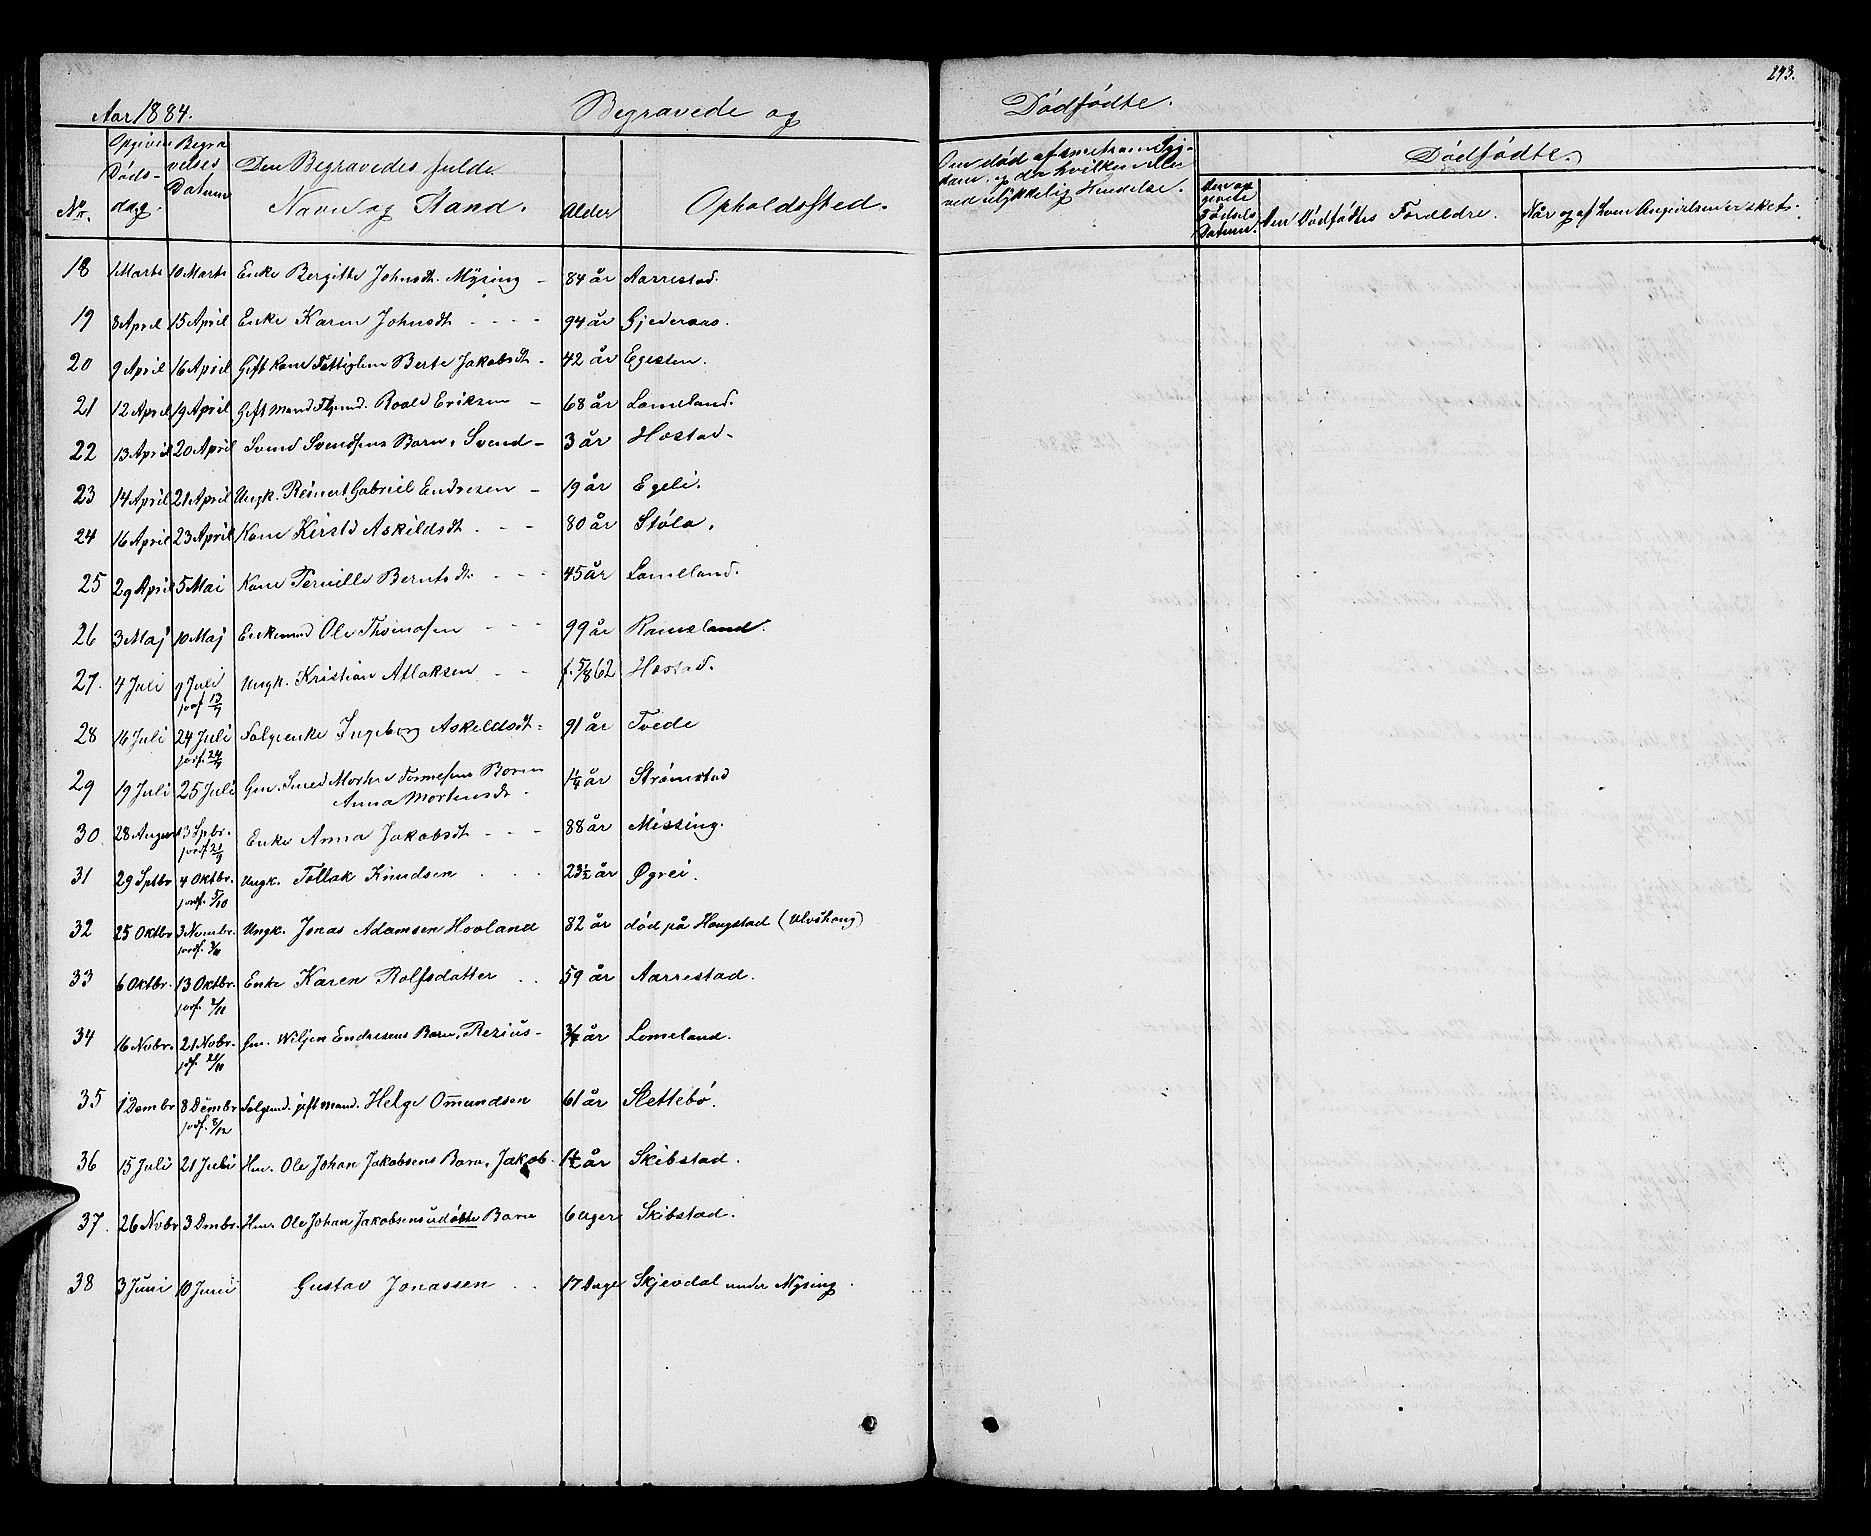 243.
Aar 1884. Begravede og Dødfødte.
No. Opgiven Døds-dag. Begravelses Datum Den Begravedes fulde Navn og Stand. Alder Opholdssted.
Om død af smitsom Syg-dom, og da hvilken eller ved ulykkelig Hændelse.
Dødfødte.
Den opgivete Fødsels Datum. Den Dødfødtes Forældre. Når og af hvem Angivelsen er skets.
18 1 Marts 10 Marts Enke Bergitte Johnsdt. Mysing - 84 år Aarrestad.
19 8 April 15 April Enke Karen Johnsdt - - - - 94 år Gjederaas.
20 9 April 16 April Gift kone Fattiglem Berte Jakobsdt - 42 år Egesten.
21 12 April 19 April Gift mand Roald Eriksen - 68 år Lomeland.
22 13 April 20 April Svend Svendsens Barn, Svend - 3 år Hæstad.
23 14 April 21 April Ungk. Reinert Gabriel Endresen - 19 år Egeli.
24 16 April 23 April Kone Kirsti Askildsdt. - - 80 år Støla.
25 29 April 5 Mai Kone Pernille Berntsdt. - - - 45 år Lomeland.
26 3 Maj 10 Maj Enkemd Ole Thomasen - - - 99 år Ramsland.
27. 4 Juli 9 Juli Ungk. Kristian Atlaksen - - f. 5/8 62 Hæstad.
jordf 13/7
28 16 Juli 24 Juli Folgeenke Ingeborg Askeldsdt - 91 år Tvede
jordf. 24/7
29 19 Juli 25 Juli Gm. Smed Morten Tønnesens Barn 1 1/4 år Strømstad
Anna Mortensdt -
30. 28 August 13 Spbr. Enke Anna Jakobsdt - - - 88 år Missing.
jordf 21/9
31 29 Sptbr 4 Oktbr. Ungk. Tollak Knudsen - - - 23 1/2 år Øgrei.
jordf. 5/10
32 25 Oktbr 3 Novmbr. Ungk. Jonas Adamsen Hovland 82 år død på Haugstad (Ulvshaug)
jordf. 3/11
33 6 Oktbr. 13 Oktbr. Enke Karen Rolfsdatter - - 59 år Aarrestad.
jordf.
34 16 Nobr. 21 Nobr. Gm. Wiljen Endresens Barn, Rezius - 3/4 år Lomeland.
jdf.
35 1 Dembr 8 Dembr Folgemd. gift mand. Helge Omundsen 61 år Slettebø.
jordf. 8/12
36 15 Juli 21 Juli Hm. Ole Johan Jakobsens Barn, Jakob - 1 1/2 år Skibstad.
37. 26 Nobr 3 Dmbr. Hm. Ole Johan Jakobsens udøbte Barn 6 Uger Skibstad.
38 3 Juni 10 Juni Gustav Jonassen - - 17 Dage Skjevdal under Mysing.